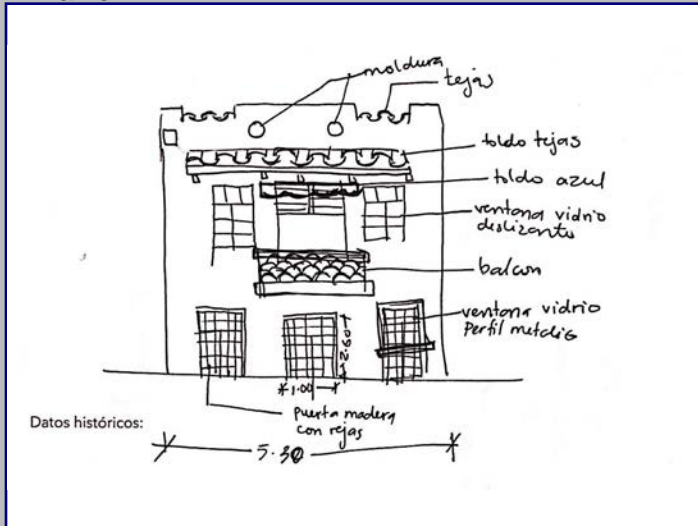 moldura
tejas
toldo tejas
toldo azul
ventana vidrio
deslizantes
balcon
ventana vidrio
Perfil metalic
2.60
1.00
puerta madera
con rejas
Datos históricos:
5.30